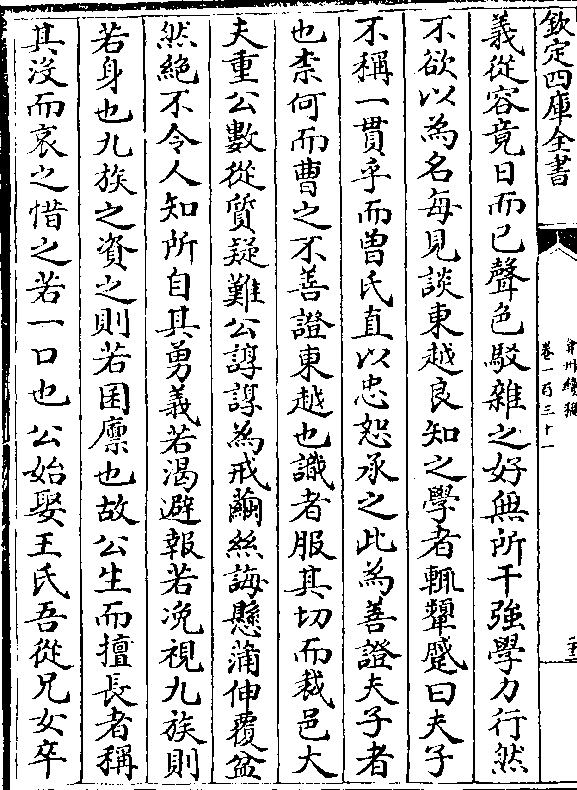 欽定四庫全書
弇州續稿
卷一百三十一
義從容竟日而已聲色駁雜之好無所干強學力行然
不欲以為名每見談東越良知之學者輒顰蹙曰夫子
不稱一貫乎而曾氏直以忠恕承之此為善證夫子者
也柰何而曹之不善證東越也識者服其切而裁邑大
夫重公數從質疑難公諄諄為戒繭絲誨懸蒲伸覆盆
然絶不令人知所自其勇義若渴避報若凂視九族則
若身也九族之資之則若囷廩也故公生而擅長者稱
其沒而哀之惜之若一口也公始娶王氏吾從兄女卒